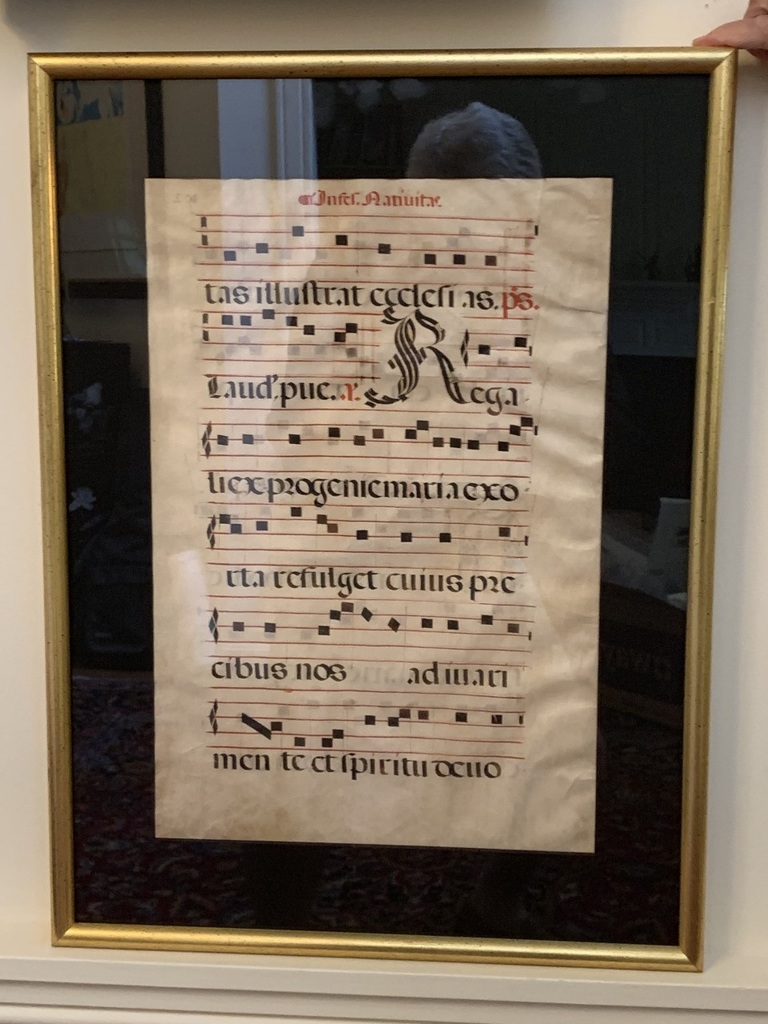 In fest. Natiuitat.
tas illustrat ecclesi as. ps.
Laud'. pue. a. Rega
li ex progenie maria exo
rta refulget cuius pre
cibus nos ad iuuari
men te et spiritu deuo